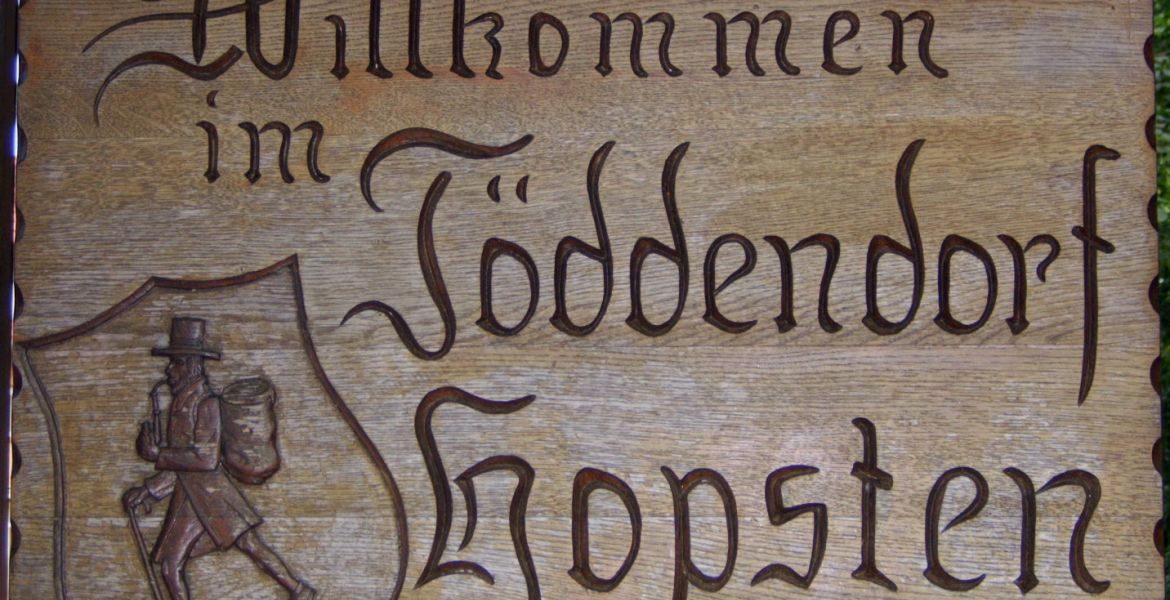 Willkommen
im
Töddendorf
Hopsten